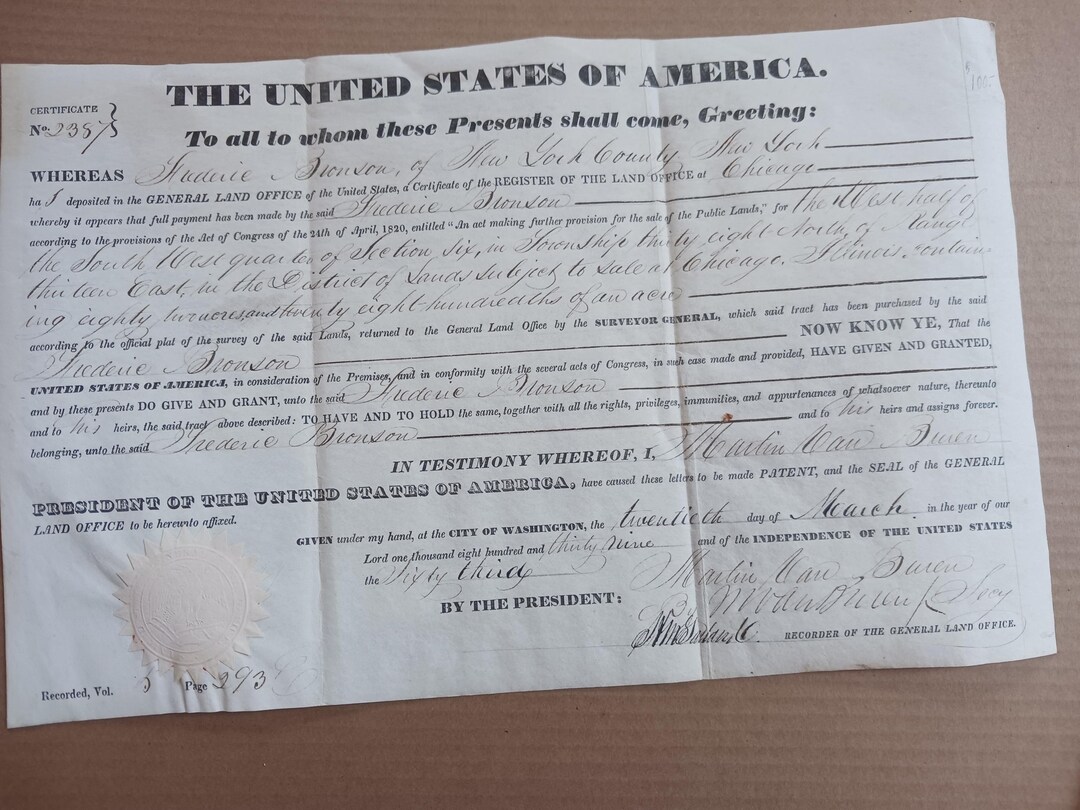 THE UNITED STATES OF AMERICA.
CERTIFICATE
No. 2387
To all to whom these Presents shall come, Greeting:
WHEREAS Frederic Bronson, of New York County New York
ha s deposited in the GENERAL LAND OFFICE of the United States, a Certificate of the REGISTER OF THE LAND OFFICE at Chicago
whereby it appears that full payment has been made by the said Frederic Bronson
according to the provisions of the Act of Congress of the 24th of April, 1820, entitled "An act making further provision for the sale of the Public Lands," for the West half of
the South West quarter of Section six, in Township thirty eight North, of Range
thirteen East, in the District of Lands subject to sale at Chicago. Illinois, contain
ing eighty two acres, and twenty eight hundredths of an acre
according to the official plat of the survey of the said Lands, returned to the General Land Office by the SURVEYOR GENERAL, which said tract has been purchased by the said
Frederic Bronson
NOW KNOW YE, That the
UNITED STATES OF AMERICA, in consideration of the Premises, and in conformity with the several acts of Congress, in such case made and provided, HAVE GIVEN AND GRANTED,
and by these presents DO GIVE AND GRANT, unto the said Frederic Bronson
and to his heirs, the said tract above described: TO HAVE AND TO HOLD the same, together with all the rights, privileges, immunities, and appurtenances of whatsoever nature, thereunto
belonging, unto the said Frederic Bronson and to his heirs and assigns forever.
IN TESTIMONY WHEREOF, I, Martin Van Buren
PRESIDENT OF THE UNITED STATES OF AMERICA, have caused these letters to be made PATENT, and the SEAL of the GENERAL
LAND OFFICE to be hereunto affixed.
GIVEN under my hand, at the CITY OF WASHINGTON, the twentieth day of March in the year of our
Lord one thousand eight hundred and thirty nine and of the INDEPENDENCE OF THE UNITED STATES
the Sixty third
Martin Van Buren
BY THE PRESIDENT:
By M Van Buren Jr Secy
RECORDER OF THE GENERAL LAND OFFICE.
Recorded, Vol. Page 293